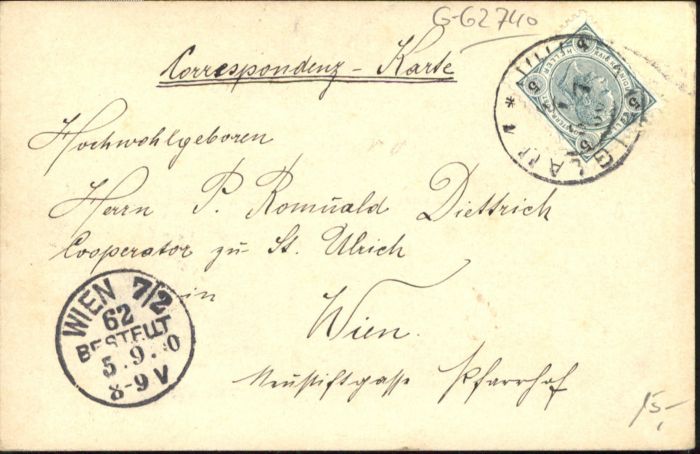 G-G2740
Correspondenz-Karte
Hochwohlgeboren
Herrn P. Romuald Diettrich
Cooperator zu St. Ulrich
in
Wien.
Neustiftgasse Pfarrhof
15,-
WIEN 7/2
62
BESTELLT
5.9.0
8-9V
IGLAU 1 *
HELLER
5
5
5
5